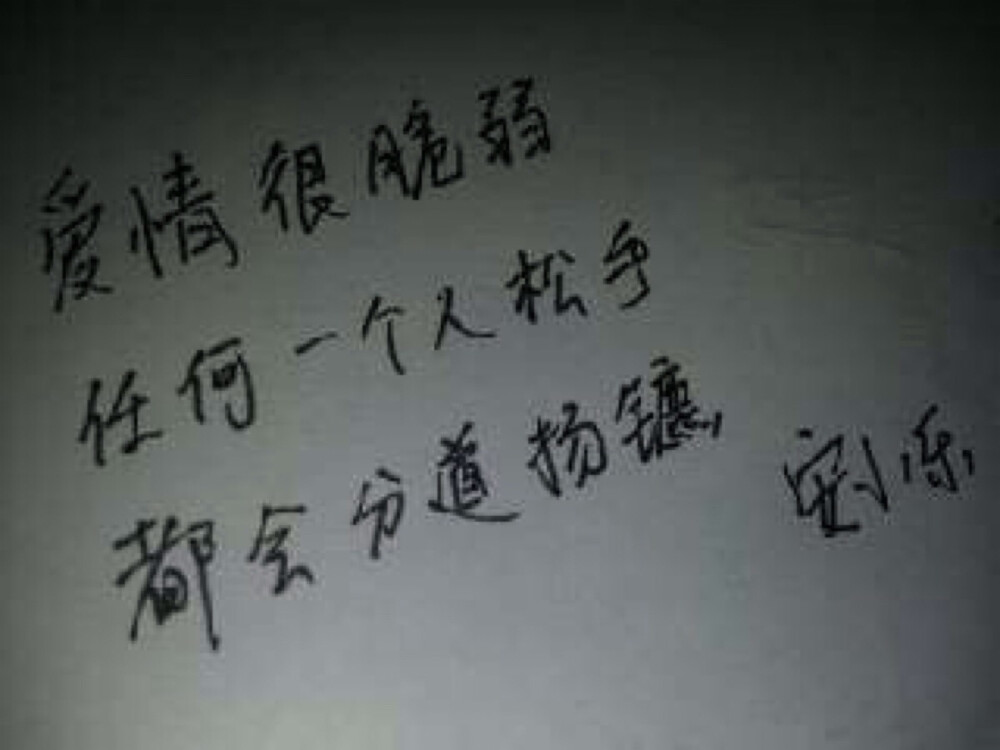 爱情很脆弱
任何一个人松手
都会分道扬镳